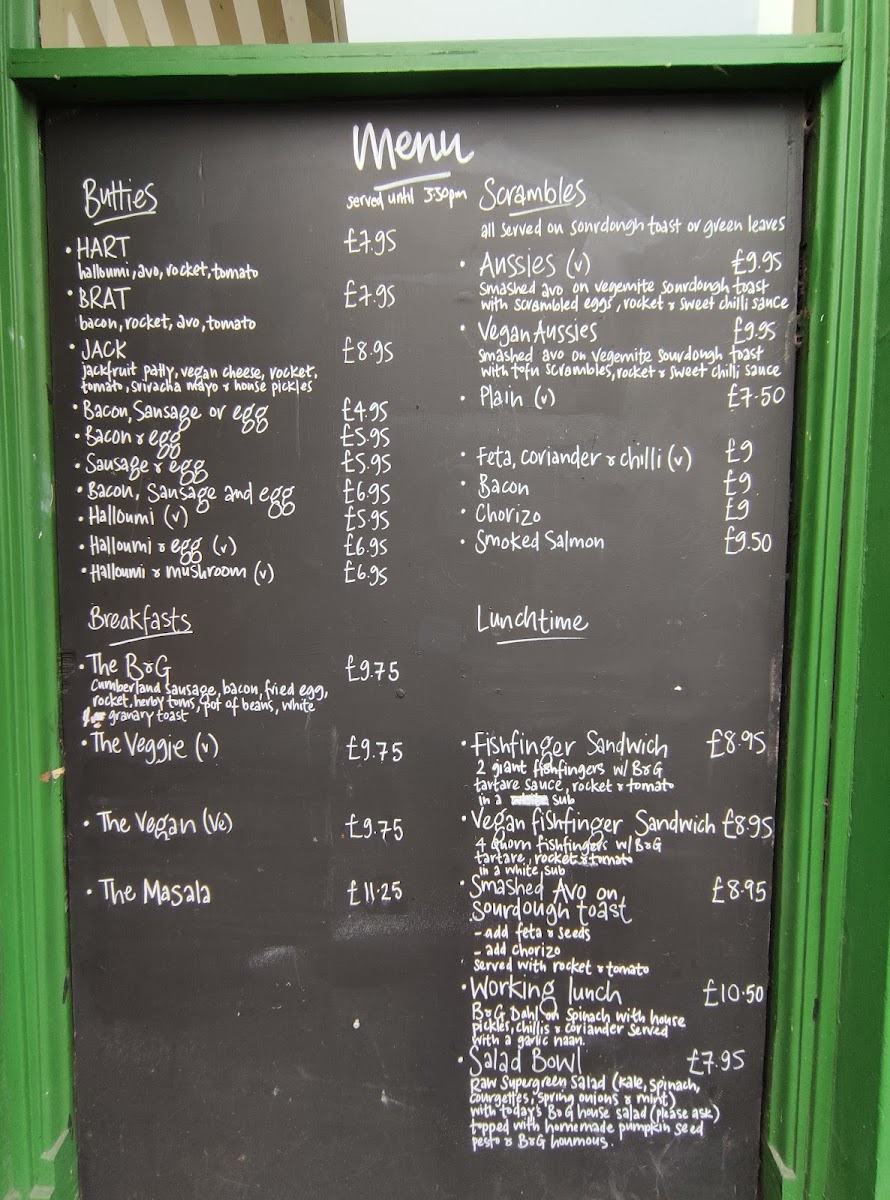 Menu
served until 3:30pm
Butties
• HART £7.95
halloumi, avo, rocket, tomato
• BRAT £7.95
bacon, rocket, avo, tomato
• JACK £8.95
jackfruit patty, vegan cheese, rocket,
tomato, sriracha mayo & house pickles
• Bacon, Sausage or egg £4.95
• Bacon & egg £5.95
• Sausage & egg £5.95
• Bacon, Sausage and egg £6.95
• Halloumi (v) £5.95
• Halloumi & egg (v) £6.95
• Halloumi & mushroom (v) £6.95
Breakfasts
• The B&G £9.75
Cumberland sausage, bacon, fried egg,
rocket, herby toms, pot of beans, white
granary toast
• The Veggie (v) £9.75
• The Vegan (Ve) £9.75
• The Masala £11.25
Scrambles
all served on sourdough toast or green leaves
• Aussies (v) £9.95
Smashed avo on vegemite sourdough toast
with scrambled eggs, rocket & sweet chilli sauce
• Vegan Aussies £9.95
Smashed avo on Vegemite sourdough toast
with tofu scrambles, rocket & sweet chilli sauce
• Plain (v) £7.50
• Feta, coriander & chilli (v) £9
• Bacon £9
• Chorizo £9
• Smoked Salmon £9.50
Lunchtime
• Fishfinger Sandwich £8.95
2 giant fishfingers w/ B&G
tartare sauce, rocket & tomato
in a sub
• Vegan fishfinger Sandwich £8.95
4 Quorn fishfingers w/ B&G
tartare, rocket & tomato
in a white sub
• Smashed Avo on £8.95
Sourdough toast
- add feta & seeds
- add chorizo
served with rocket & tomato
• Working lunch £10.50
B&G Dahl on Spinach with house
pickles, chillis & coriander served
with a garlic naan.
• Salad Bowl £7.95
Raw Supergreen Salad (kale, spinach,
courgettes, spring onions & mint)
with today's B&G house salad (please ask)
topped with homemade pumpkin seed
pesto & B&G houmous.